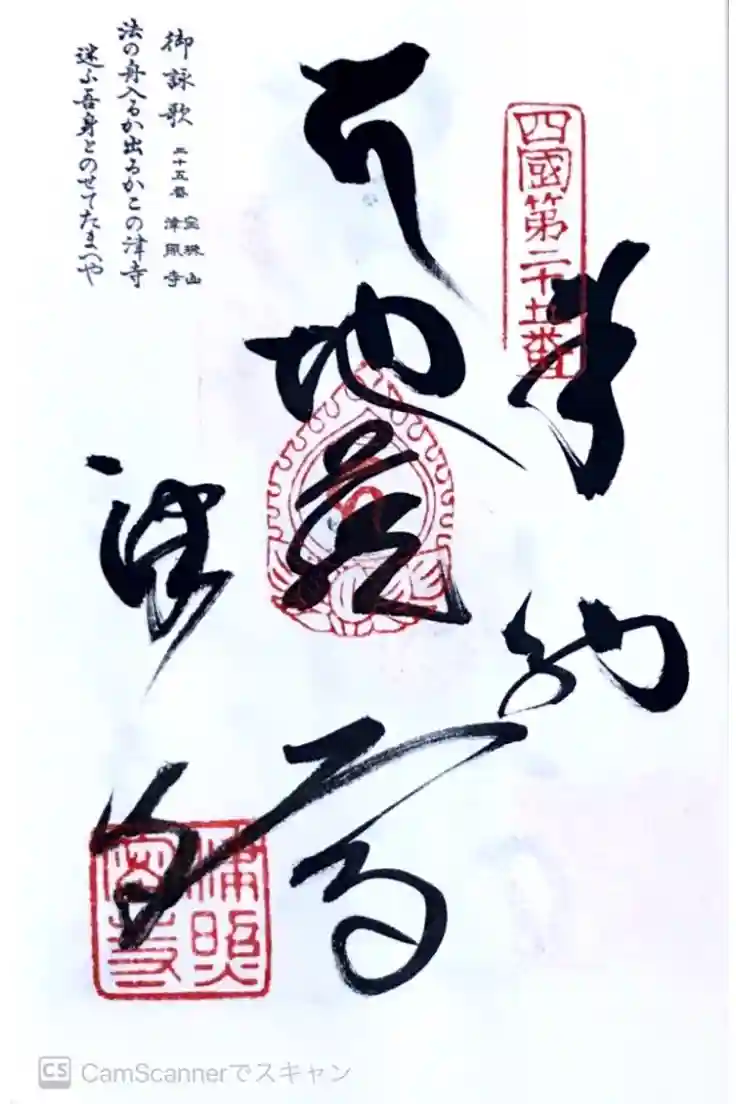 四國第二十五番
奉納
地蔵
津寺
御詠歌
二十五番 宝珠山 津照寺
法の舟入るか出るかこの津寺
迷ふ吾身をのせてたまへや
CamScannerでスキャン